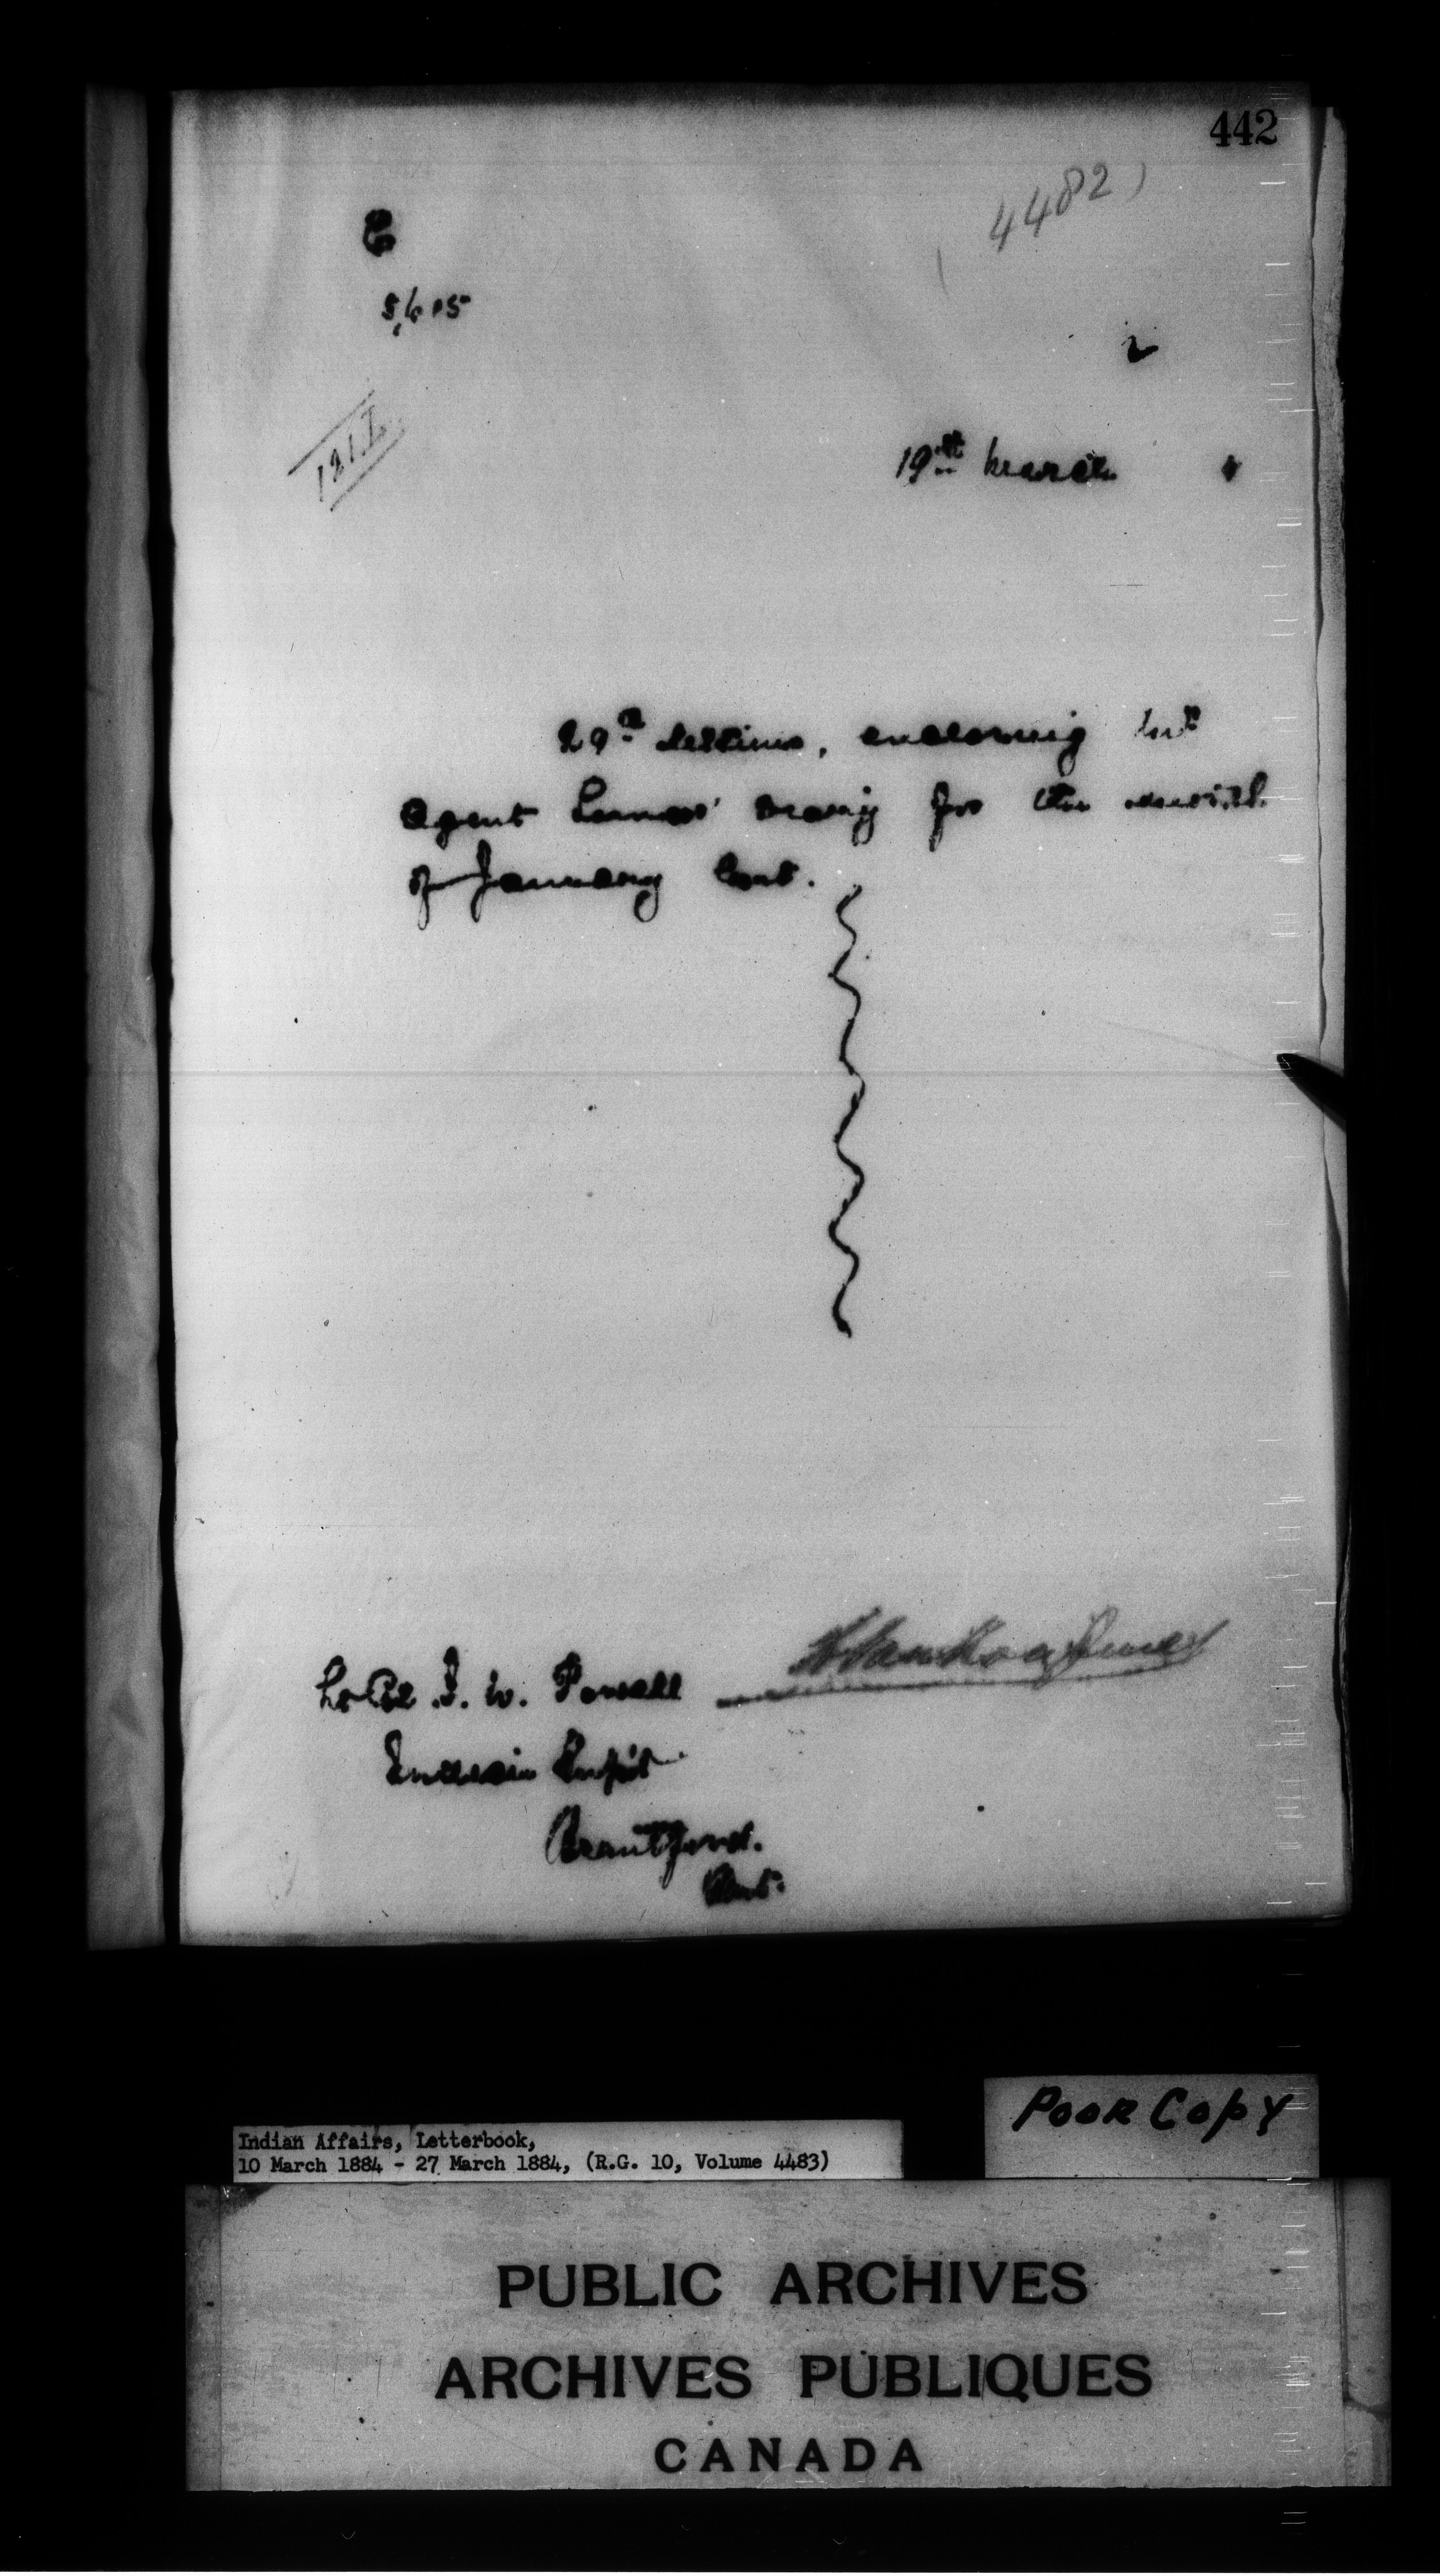 442
4482
19th March
29th Ultimo, enclosing Ind
Agent Lomas' Diary for the month
of January last.
Lt Col I. W. Powell
Indian Supt
Brantford.
Ont.
Poor Copy
Indian Affairs, Letterbook,
10 March 1884 - 27 March 1884, (R.G. 10, Volume 4483)
PUBLIC ARCHIVES
ARCHIVES PUBLIQUES
CANADA